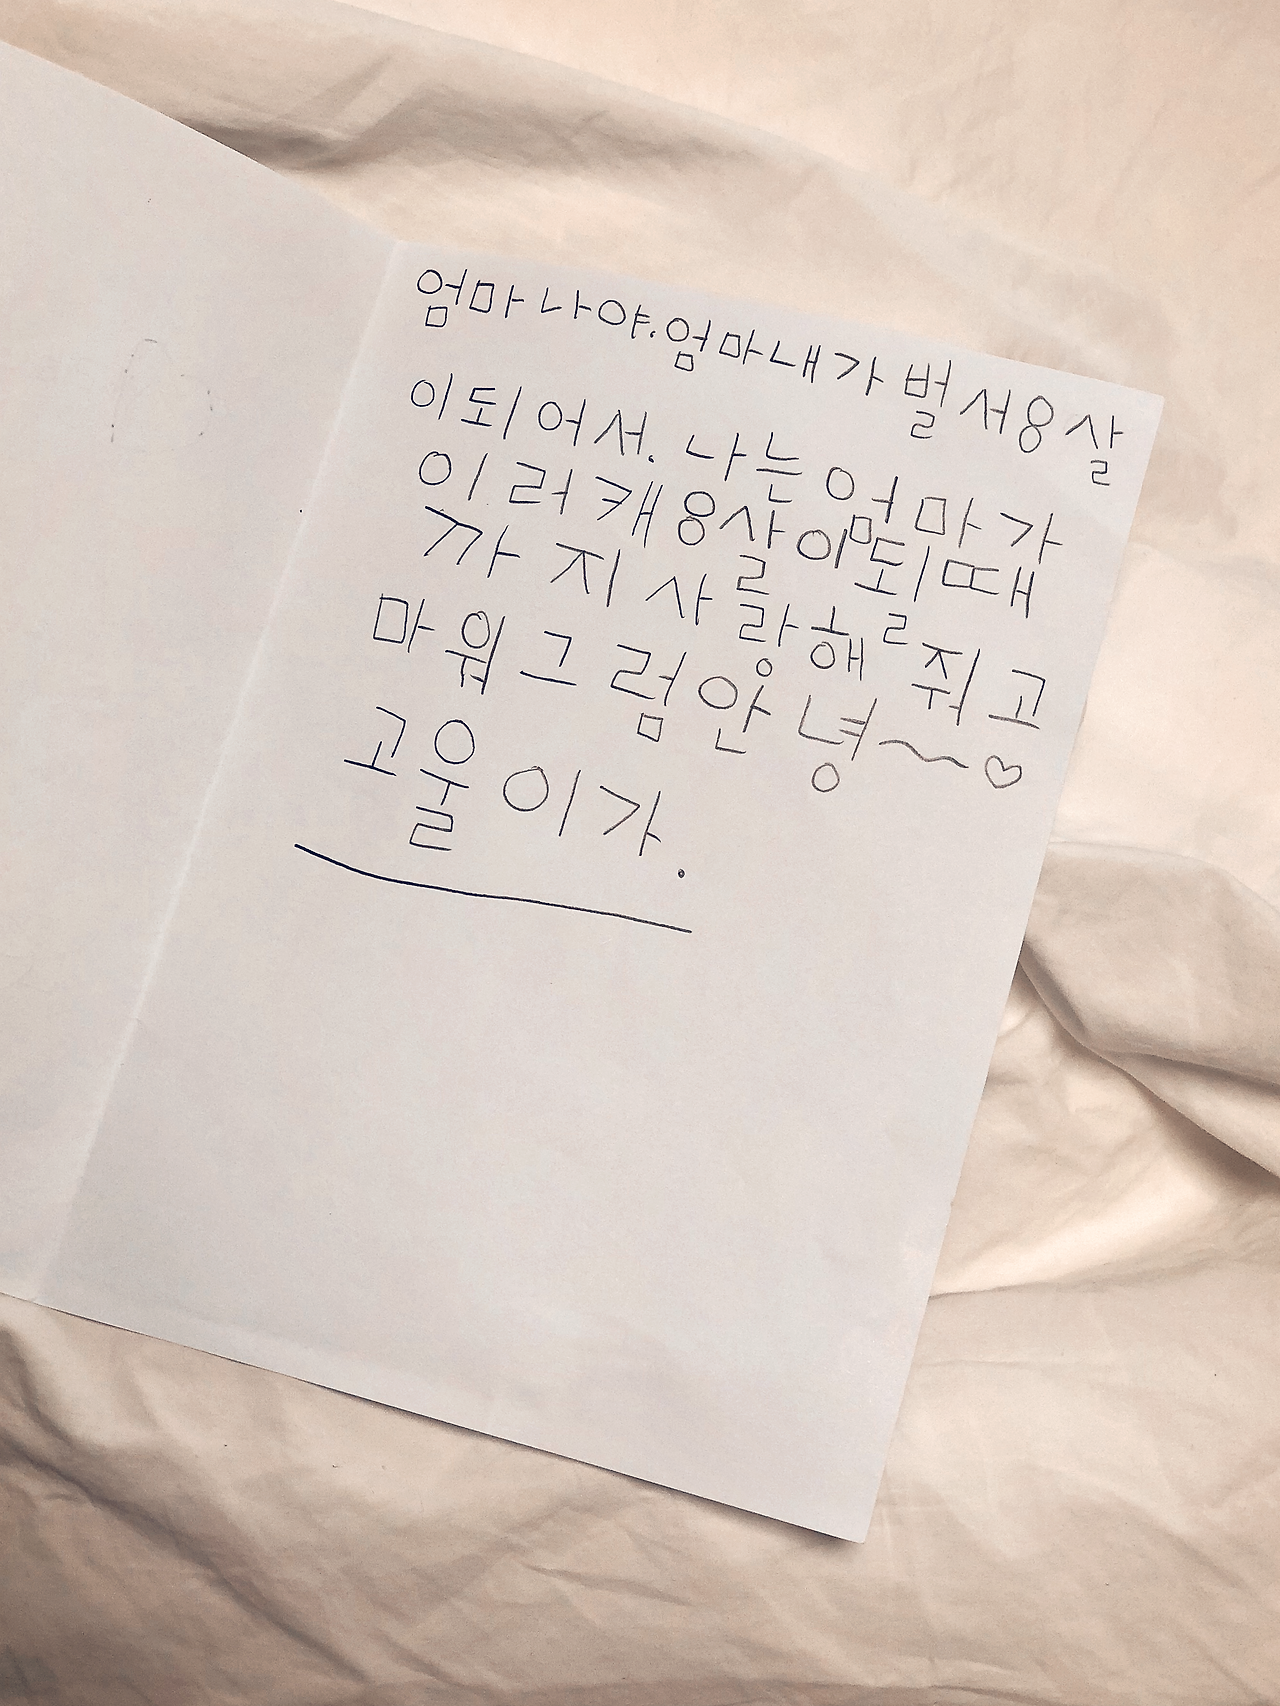 엄마 나야. 엄마 내가 벌서 8살
이 되어서. 나는 엄마가
이러캐 8살이 될 때
까지 사랑해 줘 고
마워 그럼 안녕~♡
고울이가.